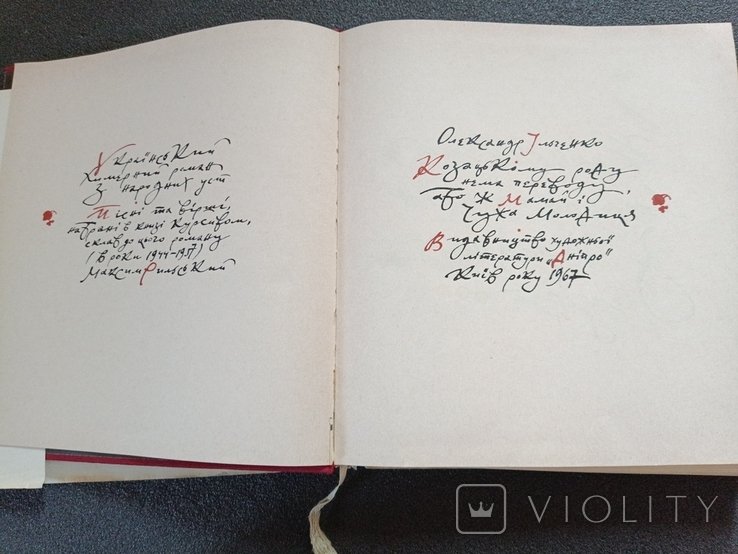 Український
Химерний роман
З народних уст
Пісні та вірші,
набрані в книзі курсивом,
склав до цього роману
(в роки 1944-1957)
Максим Рильський
Олександр Ільченко
Козацькому роду
нема переводу,
або ж Мамай і
Чужа Молодиця
Видавництво художньої
літератури „Дніпро"
Київ року 1967
VIOLITY